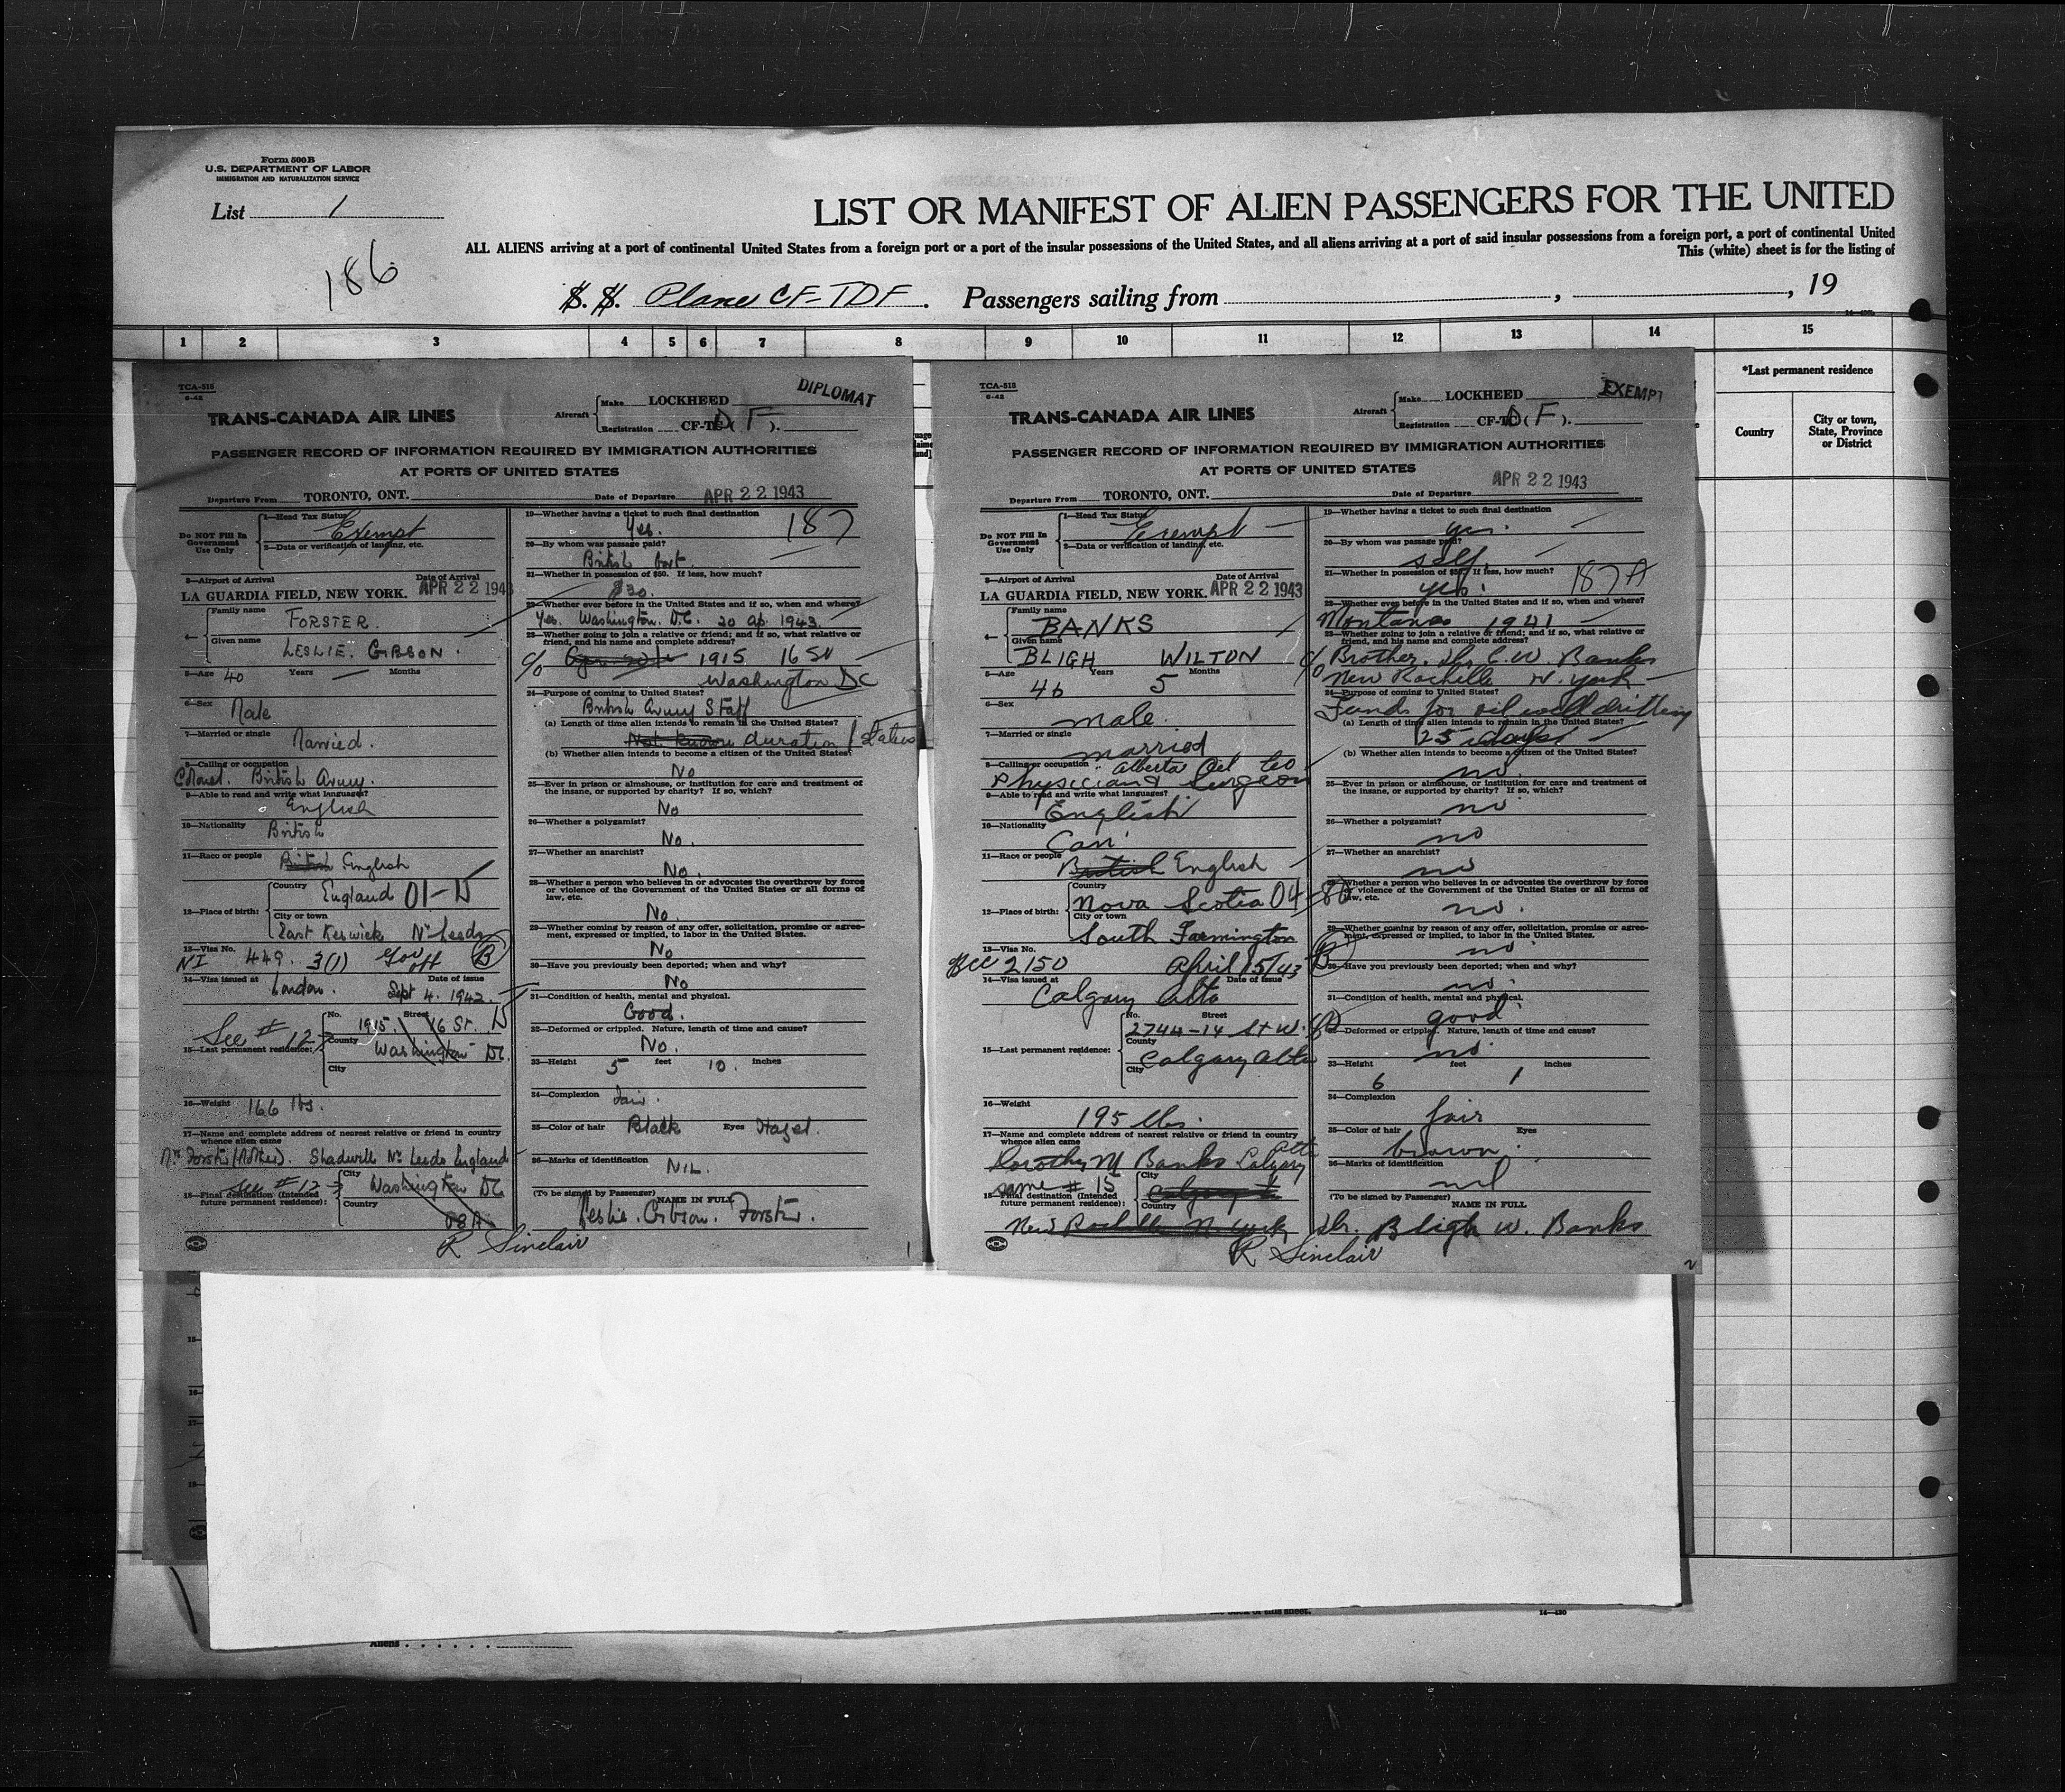 Form 500B
U.S. DEPARTMENT OF LABOR
IMMIGRATION AND NATURALIZATION SERVICE
List 1
186
LIST OR MANIFEST OF ALIEN PASSENGERS FOR THE UNITED
ALL ALIENS arriving at a port of continental United States from a foreign port or a port of the insular possessions of the United States, and all aliens arriving at a port of said insular possessions from a foreign port, a port of continental United
This (white) sheet is for the listing of
S. S. Plane CF-TDF. Passengers sailing from , , 19
1 2 3 4 5 6 7 8 9 10 11 12 13 14 15
*Last permanent residence
Country
City or town, State, Province or District
TCA-518
6-42
DIPLOMAT
TRANS-CANADA AIR LINES
Aircraft
Make LOCKHEED
Registration CF-TC D ( F ).
PASSENGER RECORD OF INFORMATION REQUIRED BY IMMIGRATION AUTHORITIES
AT PORTS OF UNITED STATES
Departure From TORONTO, ONT. Date of Departure APR 22 1943
Do NOT Fill In Government Use Only
1—Head Tax Status
Exempt
2—Data or verification of landing, etc.
3—Airport of Arrival Date of Arrival
LA GUARDIA FIELD, NEW YORK. APR 22 1943
4— Family name
FORSTER.
Given name
LESLIE. GIBSON.
5—Age 40 Years — Months
6—Sex
Male
7—Married or single
Married.
8—Calling or occupation
Colonel. British Army.
9—Able to read and write what languages?
English
10—Nationality
British
11—Race or people
British English
12—Place of birth:
Country
England 01-D
City or town
East Keswick Nr Leeds
13—Visa No.
NI 449. 3(1) Gov off B
14—Visa issued at Date of issue
London. Sept 4. 1942.
15—Last permanent residence:
See # 12
No. Street
1915. 16 St. D
County
Washington DC.
City
16—Weight 166 lbs.
17—Name and complete address of nearest relative or friend in country whence alien came
Mrs Forster (Mother). Shadwell Nr Leeds England
See # 12
18—Final destination (Intended future permanent residence):
City
Washington DC
Country
USA
R Sinclair
19—Whether having a ticket to such final destination
Yes. 187
20—By whom was passage paid?
British Govt.
21—Whether in possession of $50. If less, how much?
$30.
22—Whether ever before in the United States and if so, when and where?
Yes. Washington. D.C. 20 Ap. 1943.
23—Whether going to join a relative or friend; and if so, what relative or friend, and his name and complete address?
c/o 1915 16 St
Washington DC
24—Purpose of coming to United States?
British Army Staff
(a) Length of time alien intends to remain in the United States?
Not known duration / Status
(b) Whether alien intends to become a citizen of the United States?
No
25—Ever in prison or almshouse, or institution for care and treatment of the insane, or supported by charity? If so, which?
No
26—Whether a polygamist?
No.
27—Whether an anarchist?
No.
28—Whether a person who believes in or advocates the overthrow by force or violence of the Government of the United States or all forms of law, etc.
No.
29—Whether coming by reason of any offer, solicitation, promise or agreement, expressed or implied, to labor in the United States.
No
30—Have you previously been deported; when and why?
No
31—Condition of health, mental and physical.
Good.
32—Deformed or crippled. Nature, length of time and cause?
No.
33—Height 5 feet 10. inches
34—Complexion Fair.
35—Color of hair Black Eyes Hazel.
36—Marks of identification NIL.
(To be signed by Passenger) NAME IN FULL
Leslie. Gibson. Forster.
1
TCA-518
6-42
EXEMPT
TRANS-CANADA AIR LINES
Aircraft
Make LOCKHEED
Registration CF-TC D ( F ).
PASSENGER RECORD OF INFORMATION REQUIRED BY IMMIGRATION AUTHORITIES
AT PORTS OF UNITED STATES
Departure From TORONTO, ONT. Date of Departure APR 22 1943
Do NOT Fill In Government Use Only
1—Head Tax Status
Exempt
2—Data or verification of landing, etc.
3—Airport of Arrival Date of Arrival
LA GUARDIA FIELD, NEW YORK. APR 22 1943
4— Family name
BANKS
Given name
BLIGH WILTON
5—Age 46 Years 5 Months
6—Sex
male.
7—Married or single
married
8—Calling or occupation Alberta Oil
Physician & Surgeon
9—Able to read and write what languages?
English
10—Nationality
Can
11—Race or people
British English
12—Place of birth:
Country
Nova Scotia 04-80
City or town
South Farmington
13—Visa No.
2150 April 15/43 B
14—Visa issued at Date of issue
Calgary Alta
15—Last permanent residence:
No. Street
2744-14 St W.
County
Calgary Alta
City
16—Weight
195 lbs.
17—Name and complete address of nearest relative or friend in country whence alien came
Dorothy M Banks Calgary Alta
same # 15
18—Final destination (Intended future permanent residence):
City
Calgary
Country
New Rochelle N. York
R Sinclair
19—Whether having a ticket to such final destination
yes.
20—By whom was passage paid?
self.
21—Whether in possession of $50. If less, how much?
yes. 187A
22—Whether ever before in the United States and if so, when and where?
Montana 1941
23—Whether going to join a relative or friend; and if so, what relative or friend, and his name and complete address?
c/o Brother. Dr. C. W. Banks
New Rochelle N. York
24—Purpose of coming to United States?
Funds for oil well drilling
(a) Length of time alien intends to remain in the United States?
25 days
(b) Whether alien intends to become a citizen of the United States?
no.
25—Ever in prison or almshouse, or institution for care and treatment of the insane, or supported by charity? If so, which?
no
26—Whether a polygamist?
no
27—Whether an anarchist?
no
28—Whether a person who believes in or advocates the overthrow by force or violence of the Government of the United States or all forms of law, etc.
no.
29—Whether coming by reason of any offer, solicitation, promise or agreement, expressed or implied, to labor in the United States.
no
30—Have you previously been deported; when and why?
no.
31—Condition of health, mental and physical.
good.
32—Deformed or crippled. Nature, length of time and cause?
no.
33—Height 6 feet 1 inches
34—Complexion
fair
35—Color of hair Eyes
brown.
36—Marks of identification
nil
(To be signed by Passenger) NAME IN FULL
Dr. Bligh W. Banks
2
14—430
Aliens